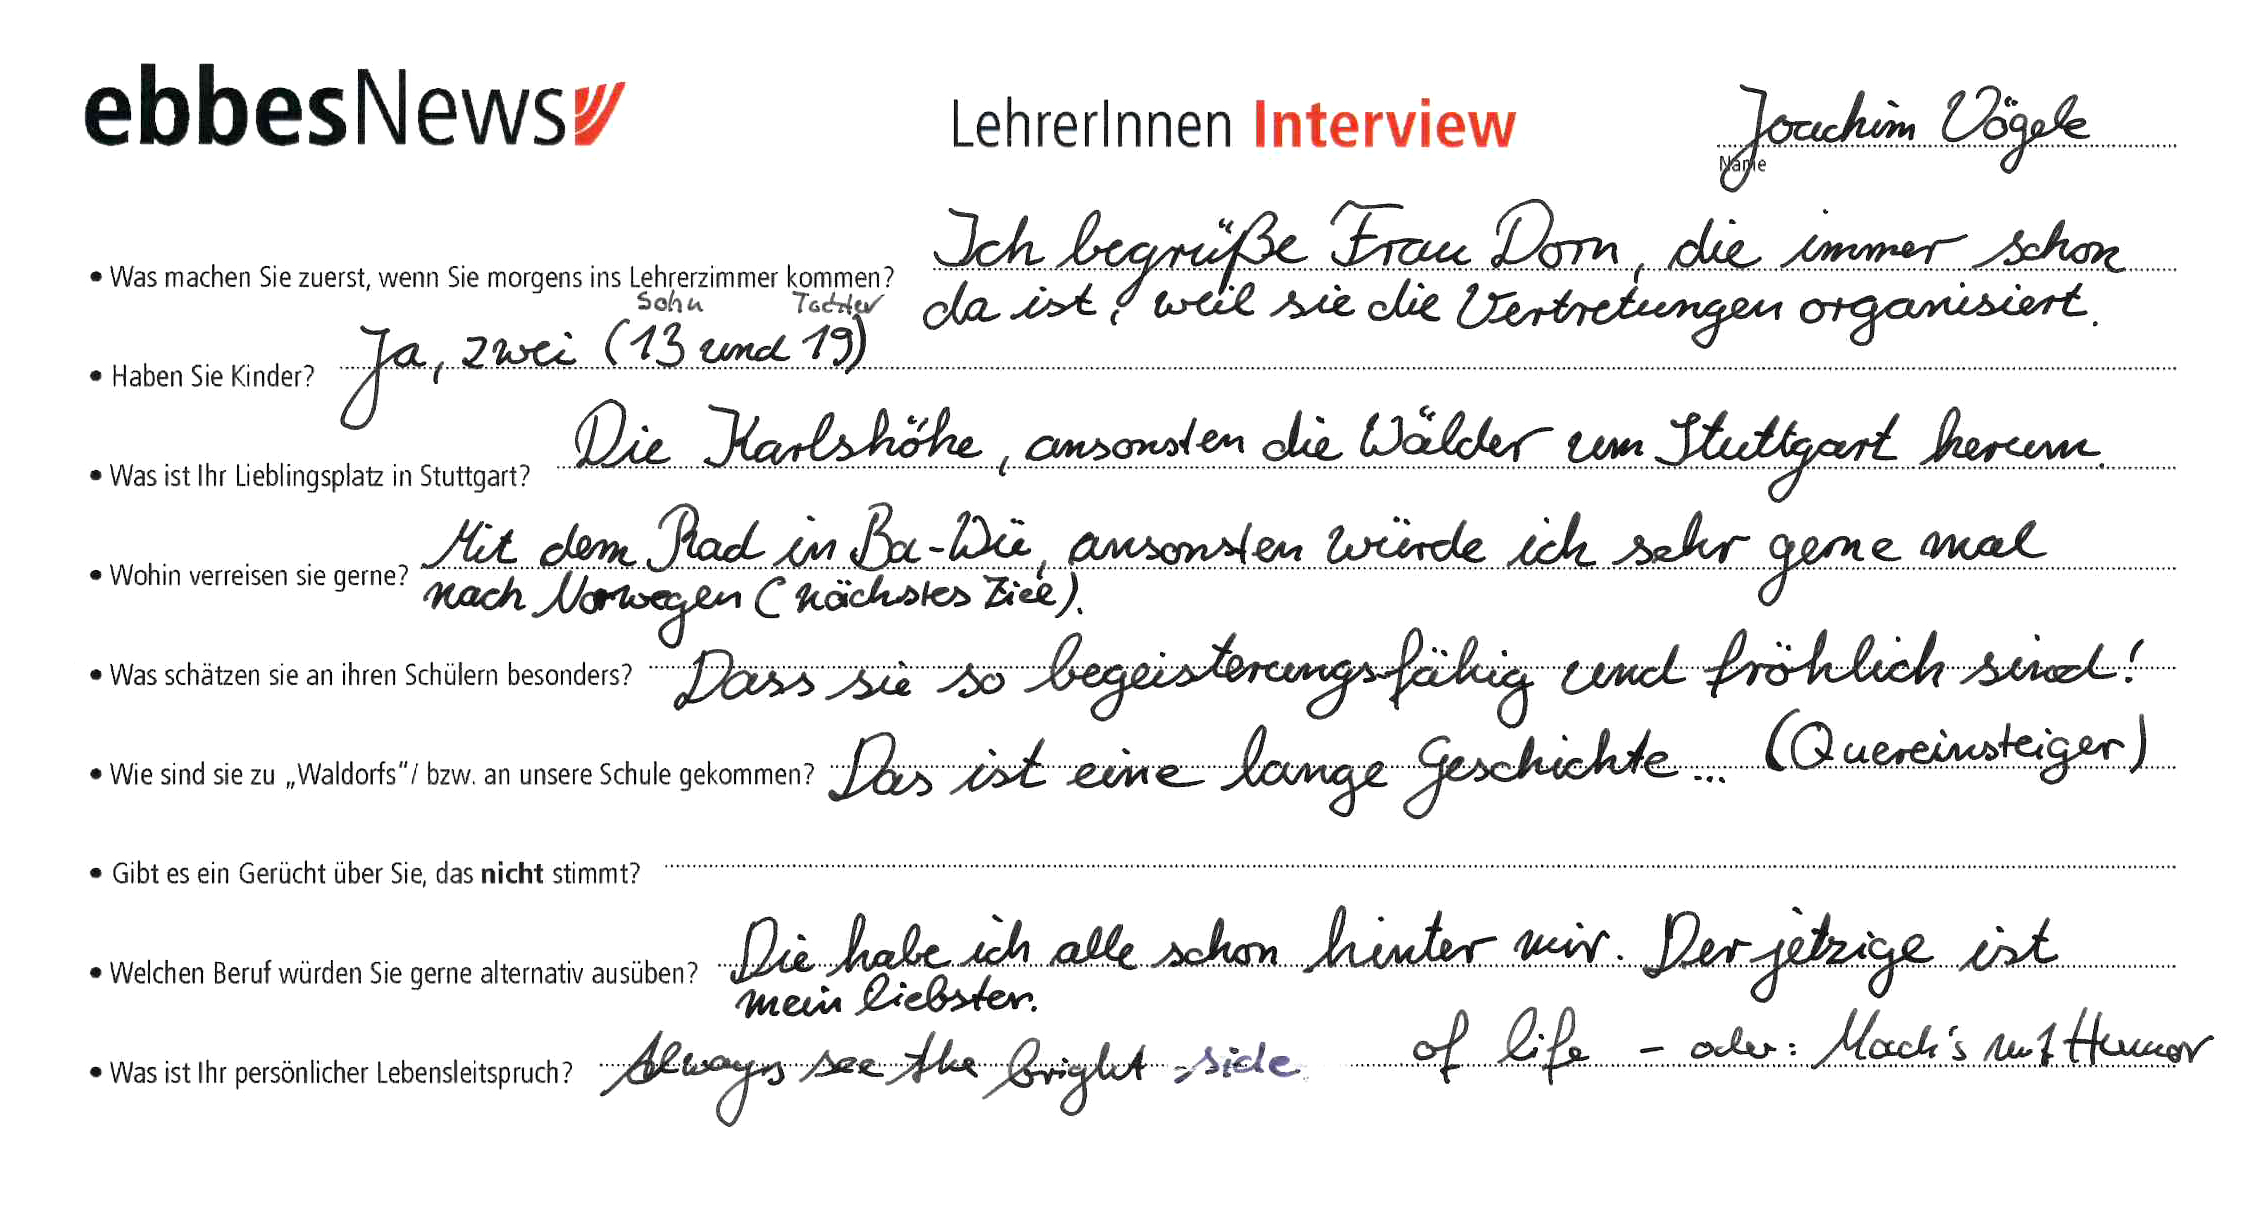 ebbesNews
LehrerInnen Interview
Joachim Vögele
Name
• Was machen Sie zuerst, wenn Sie morgens ins Lehrerzimmer kommen? Ich begrüße Frau Dorn, die immer schon
da ist, weil sie die Vertretungen organisiert.
Sohn Tochter
• Haben Sie Kinder? Ja, zwei (13 und 19)
• Was ist Ihr Lieblingsplatz in Stuttgart? Die Karlshöhe, ansonsten die Wälder um Stuttgart herum.
• Wohin verreisen sie gerne? Mit dem Rad in Ba-Wü, ansonsten würde ich sehr gerne mal
nach Norwegen (nächstes Ziel).
• Was schätzen sie an ihren Schülern besonders? Dass sie so begeisterungsfähig und fröhlich sind!
• Wie sind sie zu „Waldorfs“/ bzw. an unsere Schule gekommen? Das ist eine lange Geschichte... (Quereinsteiger)
• Gibt es ein Gerücht über Sie, das nicht stimmt?
• Welchen Beruf würden Sie gerne alternativ ausüben? Die habe ich alle schon hinter mir. Der jetzige ist
mein liebster.
• Was ist Ihr persönlicher Lebensleitspruch? Always see the bright side of life – oder: Mach's mit Humor